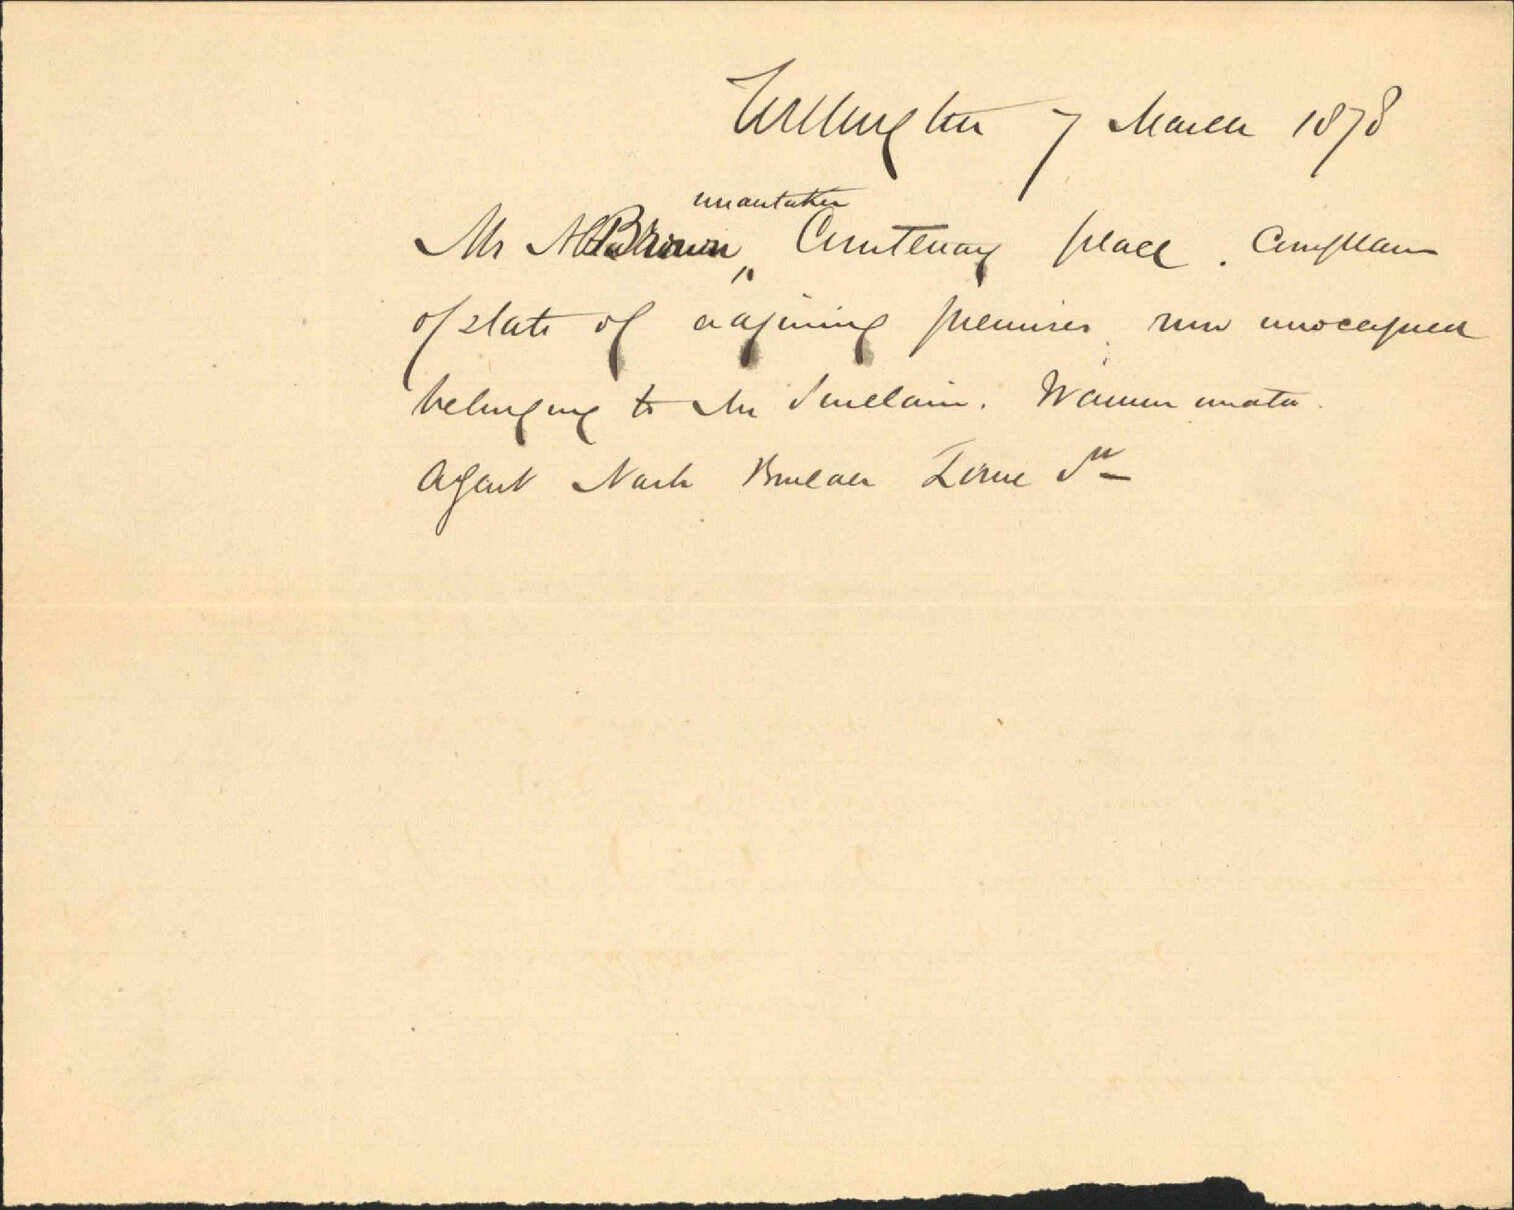 Wellington 7 March 1878
undertaker
Mr Brown, Courtenay place. Complains
of state of adjoining premises now unoccupied
belonging to Mr Sinclair. Wainuiomata.
Agent Nash Builder Lorne St